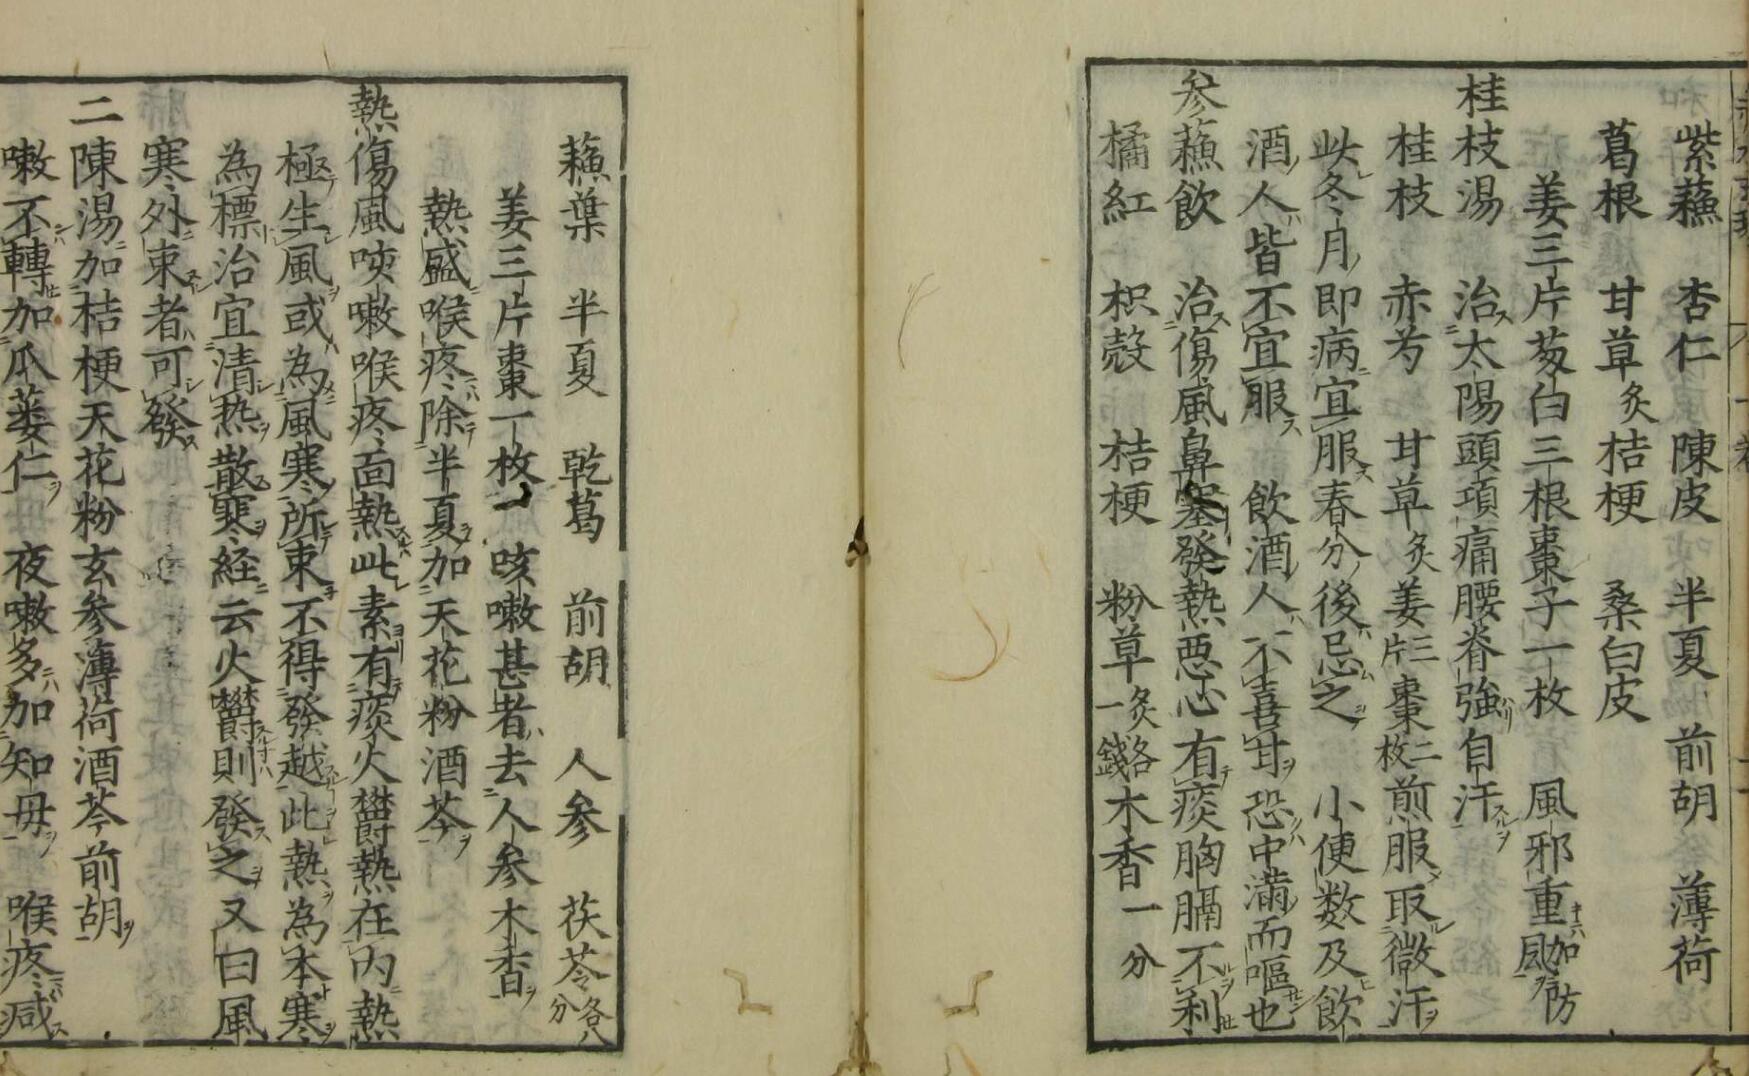 紫蘓 杏仁 陳皮 半夏 前胡 薄荷
葛根 甘草炙 桔梗 桑白皮
姜三片葱白三根棗子一枚 風邪重加防風
桂枝湯 治太陽頭項痛腰脊強自汗
桂枝 赤芍 甘草炙姜三片棗二枚煎服取微汗
此冬月即病宜服春分後忌之 小便数及飲
酒人皆不宜服 飲酒人不喜甘恐中滿而嘔也
参蘓飲 治傷風鼻塞發熱惡心有痰胸膈不利
橘紅 枳殻 桔梗 粉草炙各一錢木香一分
蘓葉 半夏 乾葛 前胡 人参 茯苓各八分
姜三片棗一枚 咳嗽甚者去人参木香
熱盛喉疼除半夏加天花粉酒芩
熱傷風咳嗽喉疼面熱此素有痰火欝熱在内熱
極生風或為風寒所束不得發越此熱為本寒
為標治宜清热散寒経云火欝則發之又曰風
寒外束者可發
二陳湯加桔梗天花粉玄参薄荷酒芩前胡
嗽不轉加瓜蒌仁 夜嗽多加知母 喉疼减